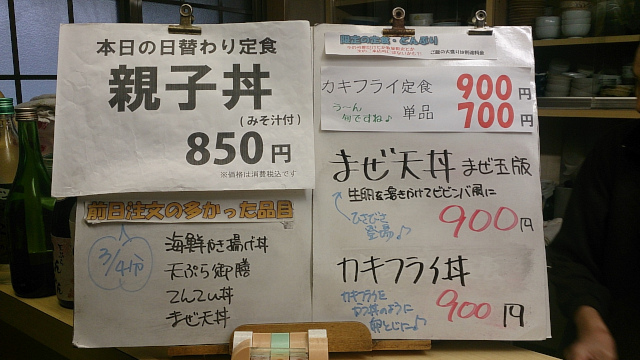 本日の日替わり定食
親子丼
(みそ汁付)
850円
※価格は消費税込です
前日注文の多かった品目
3/4分
海鮮かき揚げ丼
天ぷら御膳
てんてぃ丼
まぜ天丼
限定の定食・どんぶり
カキフライ定食 900円
う〜ん
旬ですね♪
単品 700円
まぜ天丼 まぜ玉版
生卵を溶きかけてビビンバ風に
ひさびさ
登場♪
900円
カキフライ丼
カキフライを
カツ丼のように
卵とじに♪
900円